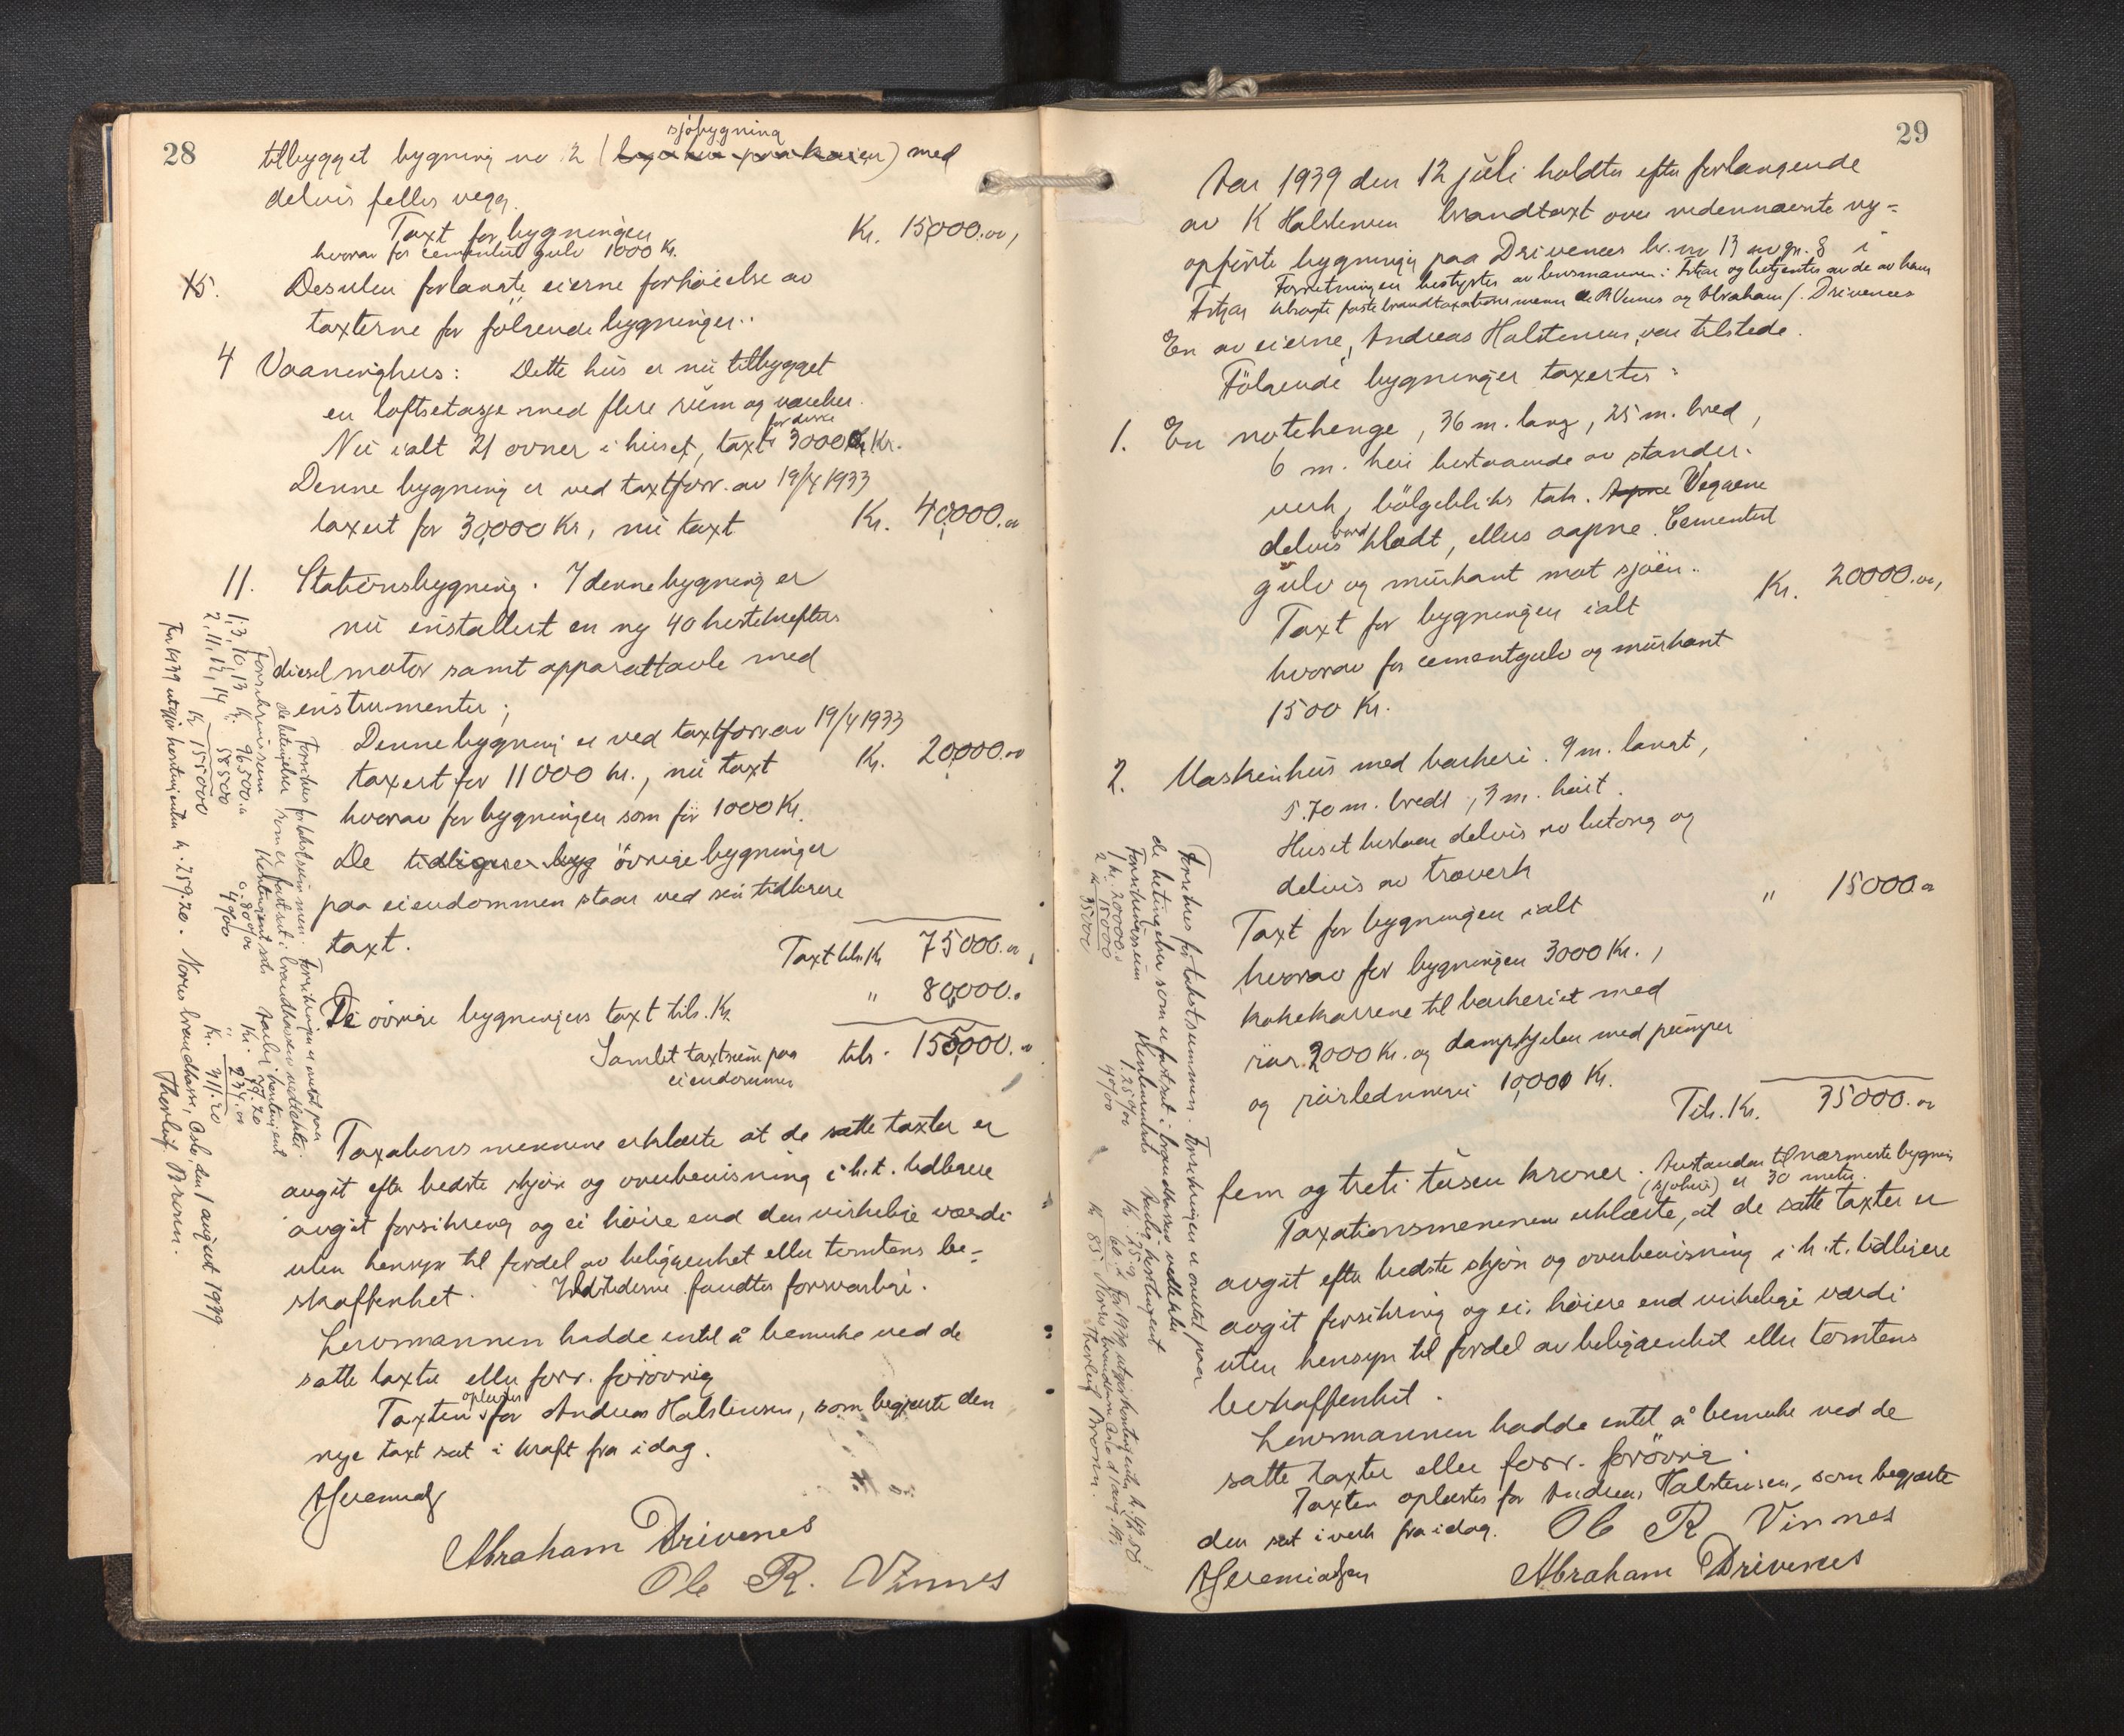 28
sjøbygning
tilbygget bygning no 2 (bryhus paa kaien) med
delvis felles vegg.
Taxt for bygningen Kr. 15000.00,
hvorav for cementert gulv 1000 Kr.
15. Desuten forlangte eierne forhöielse av
taxterne for følgende bygninger:
4 Vaaninghus: Dette hus er nu tilbygget
en loftsetasje med flere rum og værelser.
for disse
Nu ialt 21 ovner i huset, taxt 3000 Kr.
Denne bygning er ved taxtforr. av 19/4 1933
taxert for 30,000 Kr, nu taxt Kr. 40,000.00
11. Stationsbygning. I denne bygning er
nu installert en ny 40 hestekrefters
diesel motor samt apparattavle med
instrumenter;
Denne bygning er ved taxtforr av 19/4 1933
taxert for 11000 kr., nu taxt Kr. 20,000.00
hvorav for bygningen som før 1000 Kr.
De tidligere byg övrige bygninger
paa eiendommen staar ved sin tidligere
taxt. Taxt tils. Kr 75000.00,
De övrige bygningers taxt tils. Kr " 80,000.00
Samlet taxtsum paa tils. 155,000.00
eiendommen
Taxationsmennene erklærte at de satte taxter er
avgit efter bedste skjøn og overbevisning i h.t. tidligere
avgit forsikring og ei høiere end den virkelige værdi
uten hensyn til fordel av beliggenhet eller tomtens be-
skaffenhet. Ildstederne fandtes forsvarlige.
Lensmannen hadde intet å bemerke ved de
satte taxter eller forr. forøvrig
oplæstes
Taxten for Andreas Halstensen, som begjærte den
nye taxt sat i kraft fra idag.
AJeremias
Abraham Drivenes
Ole R. Vinnes
Forsikres for takstsummen. Forsikringen er antat paa
de betingelser som er fastsat i brandkassens vedtekter.
Forsikringssum Kontingentsats Aarlig kontingent
1, 3, 10, 13 Kr. 96.500.00 0.80 0/00 Kr. 77.20
2, 11, 12, 14 " 58.500 4 0/00 " 234.00
Kr. 155000 Kr. 311.20
For 1939 utgjør kontingenten kr. 259.20. Norges brandkasse, Oslo, den 1 august 1939
Thorleif Bronn.
29
Aar 1939 den 12 juli holdtes efter forlangende
av K Halstensen brandtaxt over nedennævnte ny-
opførte bygninger paa Drivenes br. no 13 av gn. 8 i
Fitjar Forretningen bestyrtes av lensmannen i Fitjar og betjentes av de av ham
opnævnte faste brandtaxationsmenn Ole R Vinnes og Abraham J. Drivenes
En av eierne, Andreas Halstensen, var tilstede.
Følgende bygninger taxertes:
1. En notehenge, 36 m. lang, 25 m. bred,
6 m. høi bestaaende av stander-
verk, bölgebliks tak. Aapne Veggene
bord
delvis klædt, ellers aapne. Cementert
gulv og murkant mot sjøen.
Taxt for bygningen ialt Kr. 20000.00,
hvorav for cementgulv og murkant
1500 Kr.
2. Maskinhus med barkeri. 9 m. langt,
5.70 m. bredt, 3 m. høit.
Huset bestaar delvis av betong og
delvis av træverk
Taxt for bygningen ialt " 15000.00
hvorav for bygningen 3000 Kr.,
kokekarrene til barkeriet med
rør. 2000 Kr. og dampkjelen med pumper
og rørledninger 10,000 Kr.
Tils. Kr. 35000.00
fem og treti tusen kroner. Avstanden til nærmeste bygning
(sjøhus) er 30 meter.
Taxationsmennene erklærte, at de satte taxter er
avgit efter bedste skjøn og overbevisning i h.t. tidligere
avgit forsikring og ei høiere end virkelige værdi
uten hensyn til fordel av beliggenhet eller tomtens
beskaffenhet.
Lensmannen hadde intet å bemerke ved de
satte taxter eller forr. forøvrig.
Taxten oplæstes for Andreas Halstensen, som begjærte
den sat i verk fra idag. Ole R Vinnes
AJeremiassen Abraham Drivenes
Forsikres for takstsummen. Forsikringen er antat paa
de betingelser som er fastsat i brandkassens vedtekter
Forsikringssum Kontingentsats Aarlig kontingent
1 kr. 20000.00 1.25 0/00 Kr. 25.00
2 " 15000 4 0/00 60.00
35000 Kr 85
For 1939 utgjør kontingenten kr. 42.50
Norges brandkasse Oslo d 1 aug. 39
Thorleif Bronn.